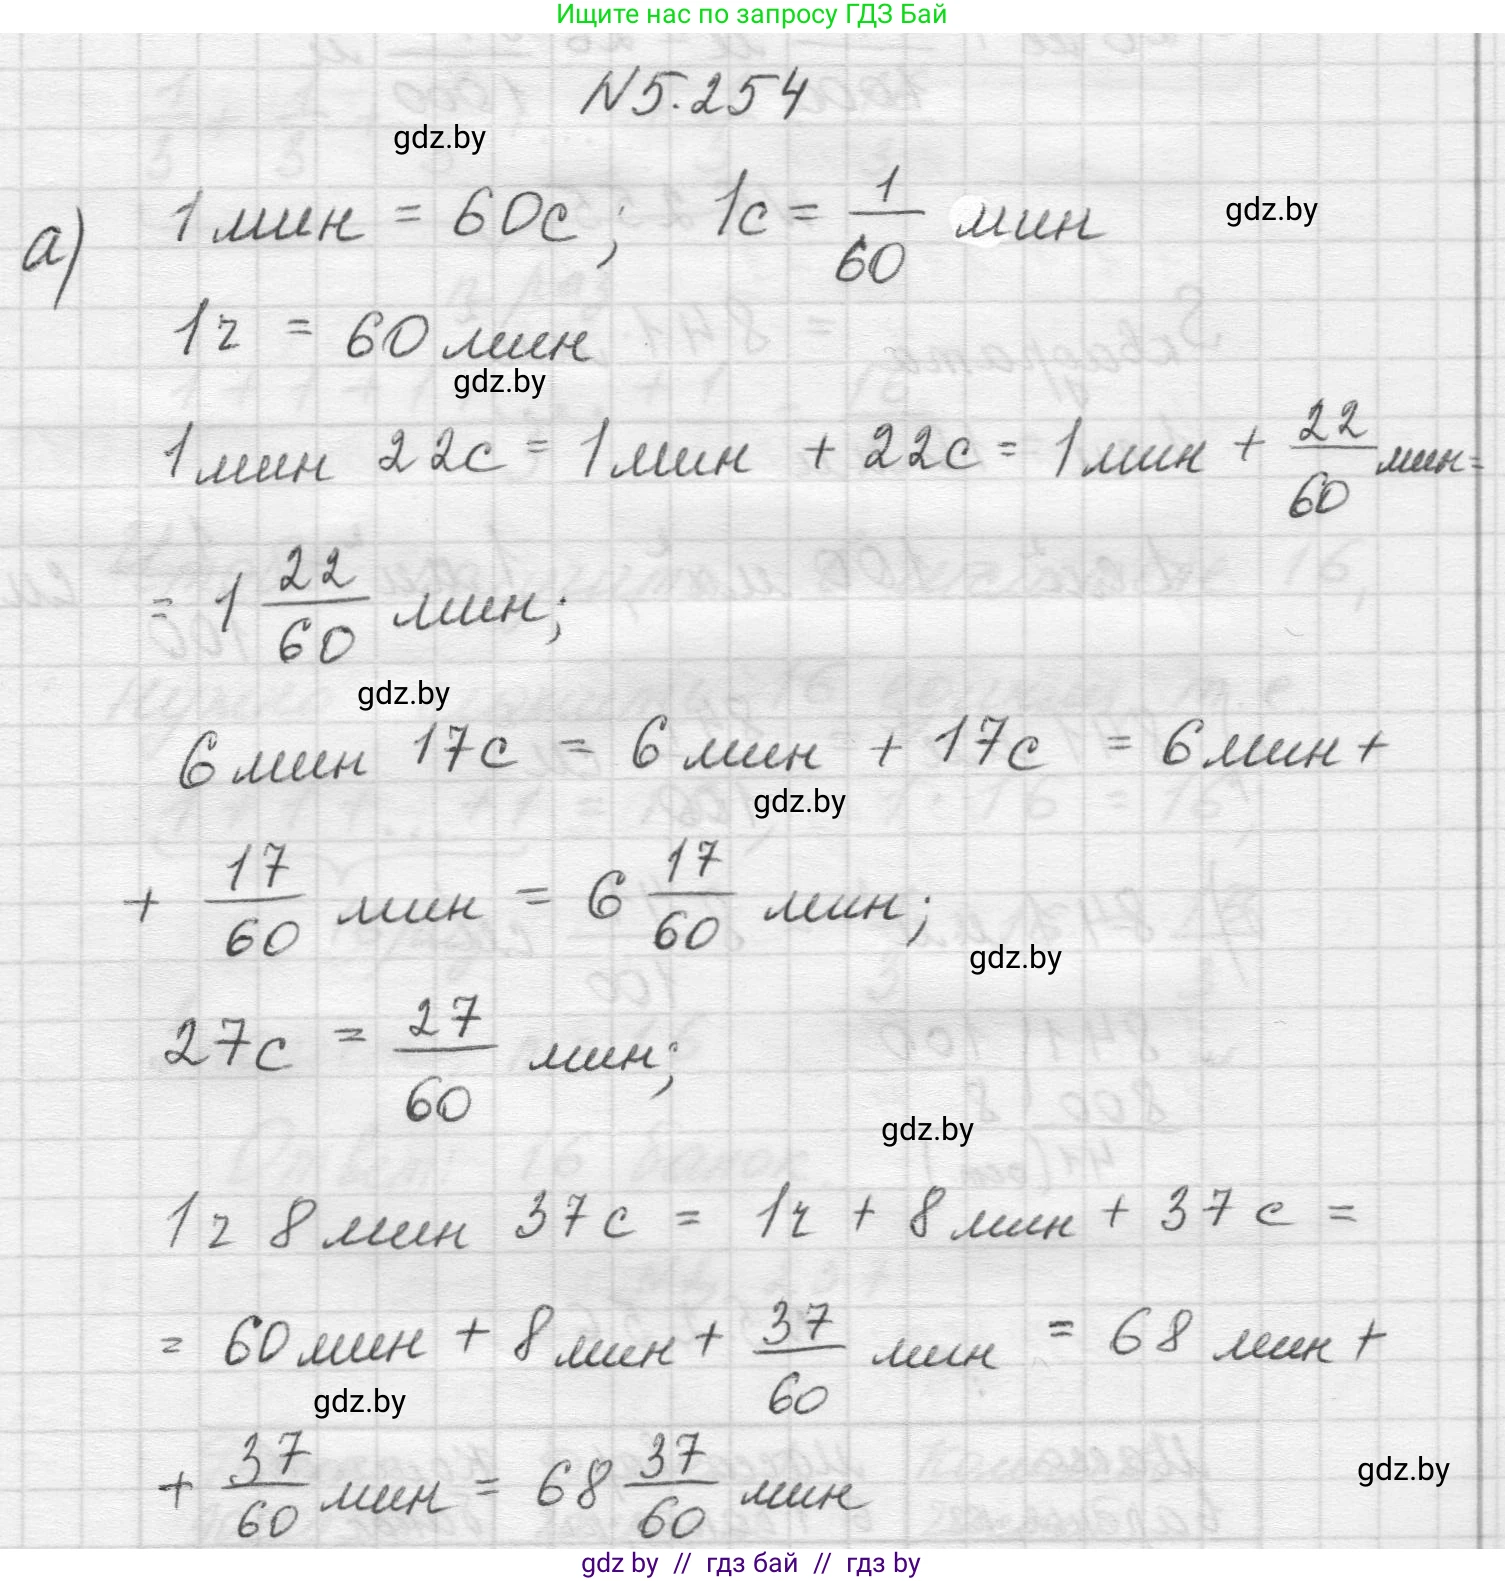 Ищите нас по запросу ГДЗ Бай
N5.254
gdz.by
а) 1 мин = 60с; 1с = 1/60 мин
gdz.by
1ч = 60 мин
gdz.by
1 мин 22с = 1 мин + 22с = 1 мин + 22/60 мин =
= 1 22/60 мин;
gdz.by
6 мин 17с = 6 мин + 17с = 6 мин +
gdz.by
+ 17/60 мин = 6 17/60 мин;
gdz.by
27с = 27/60 мин;
gdz.by
1ч 8 мин 37с = 1ч + 8 мин + 37с =
= 60 мин + 8 мин + 37/60 мин = 68 мин +
gdz.by
+ 37/60 мин = 68 37/60 мин
gdz.by
gdz by // гдз бай // гдз by